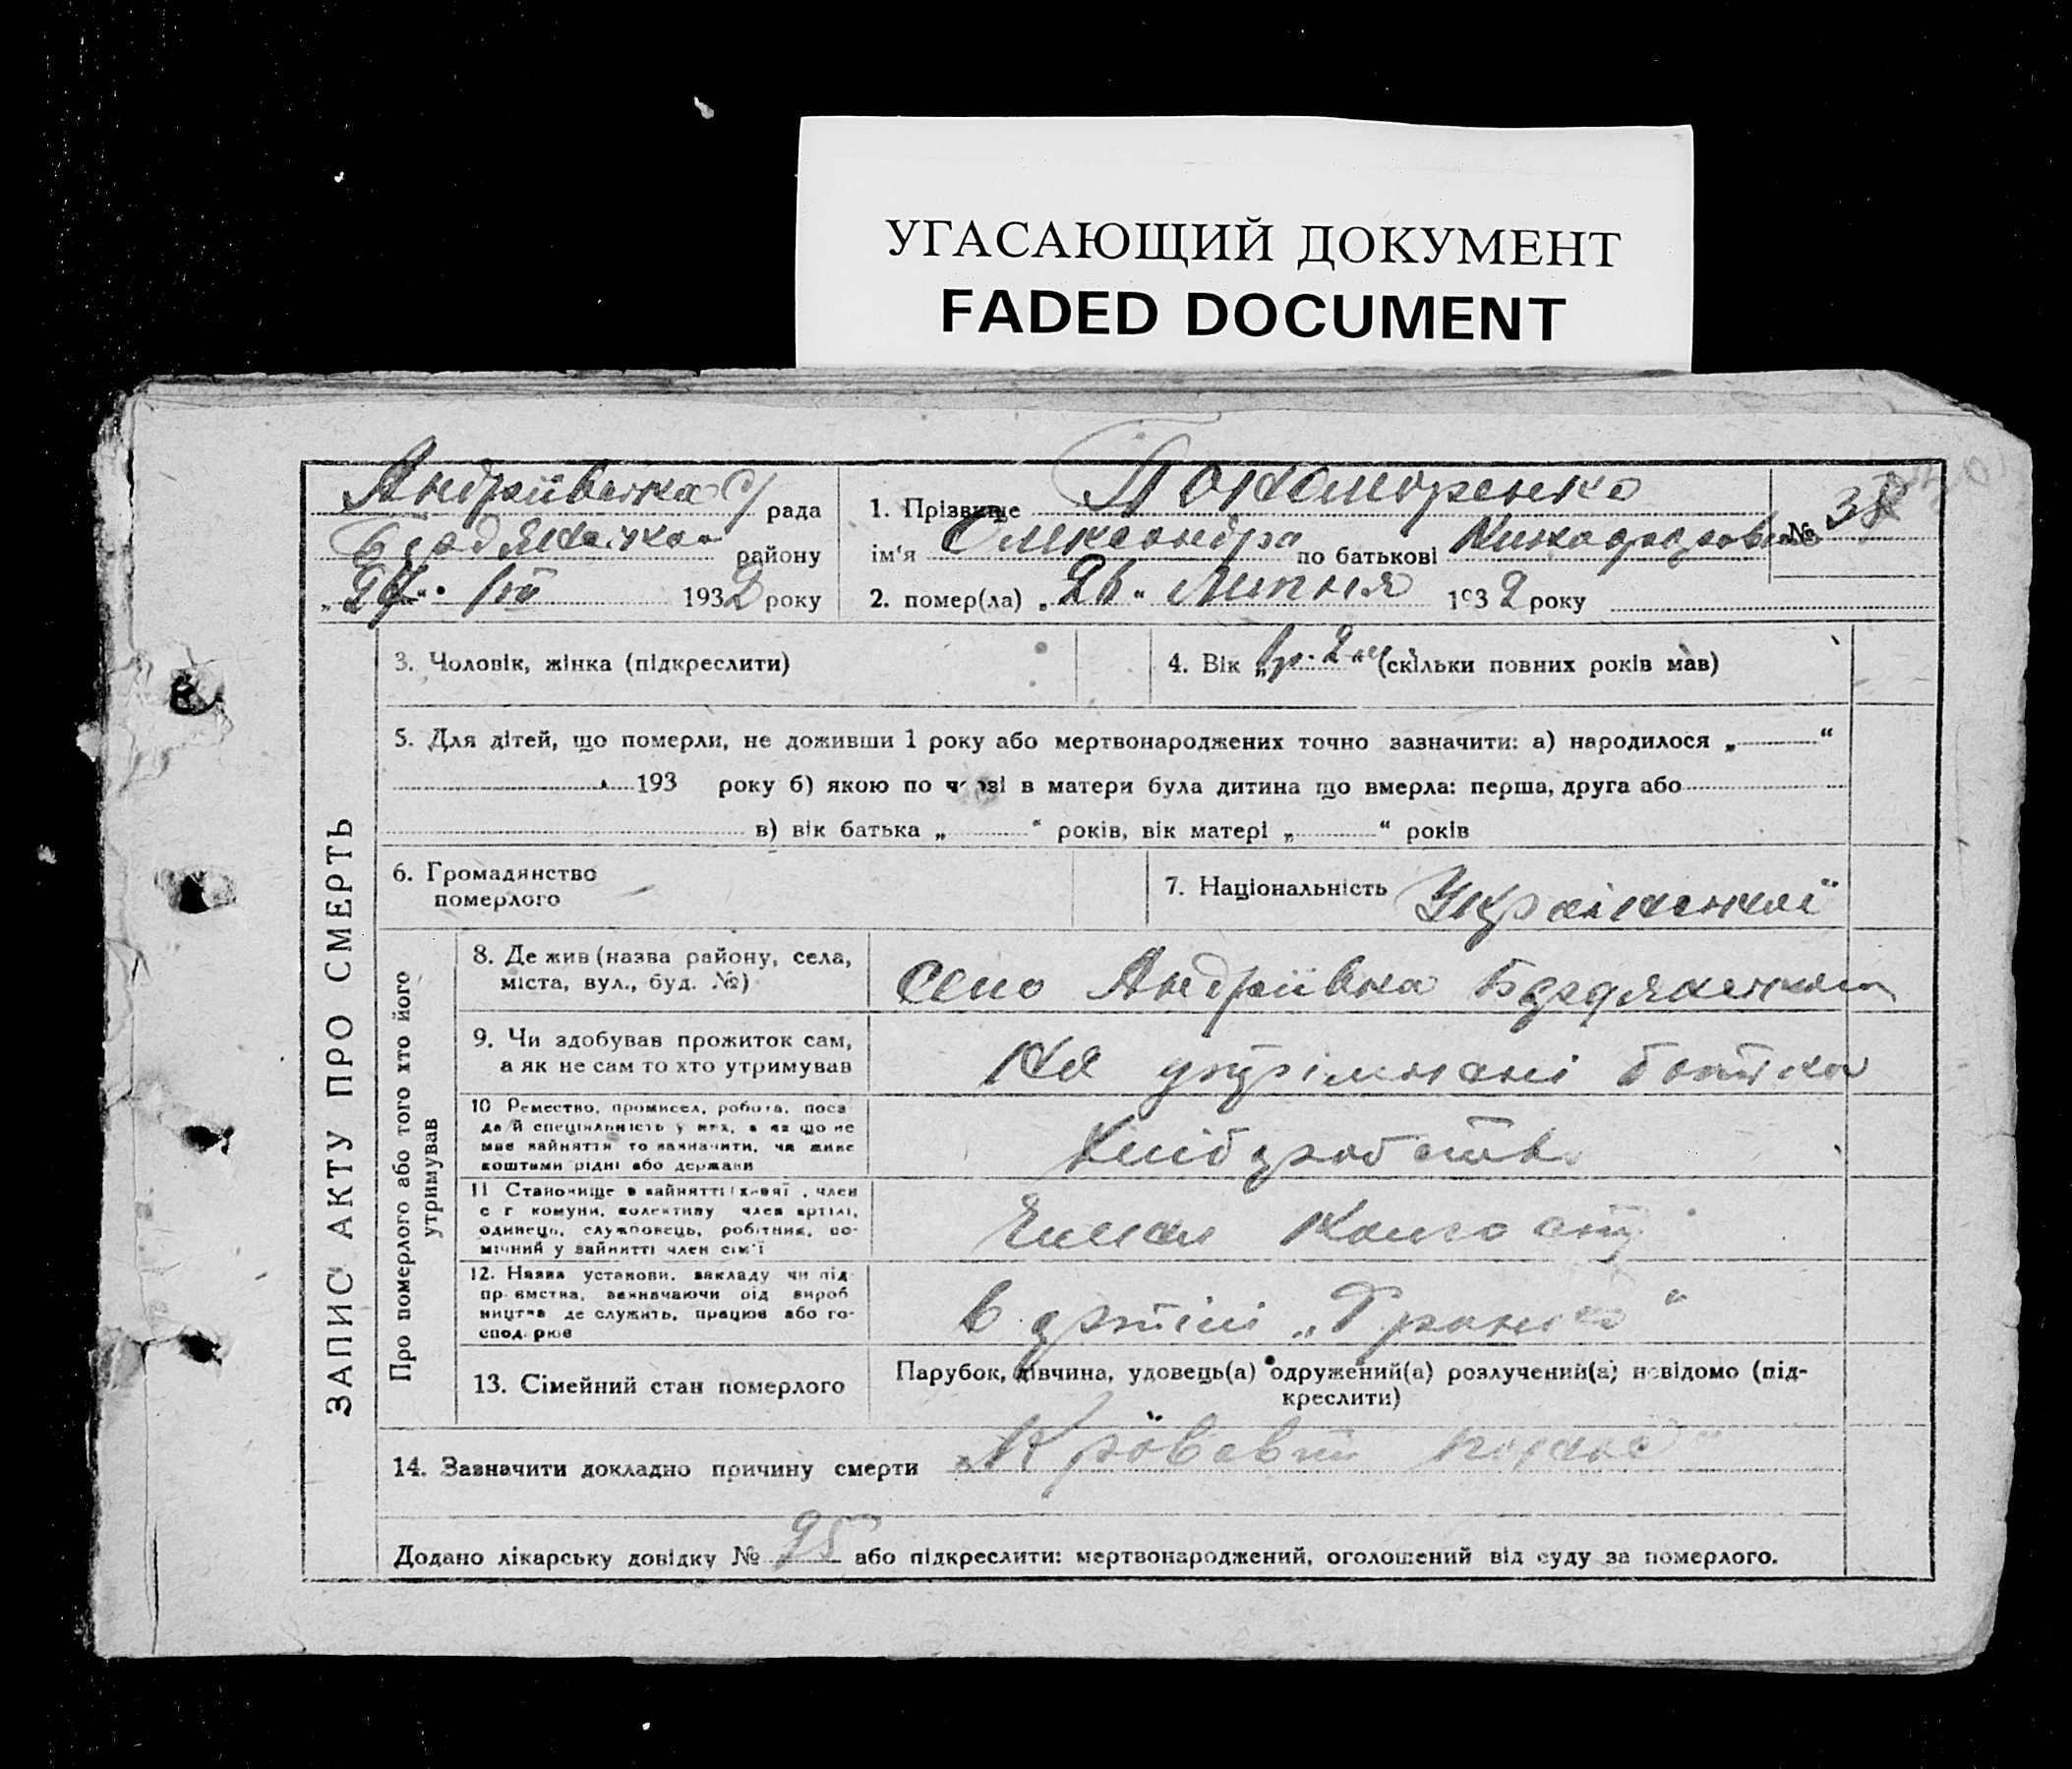 УГАСАЮЩИЙ ДОКУМЕНТ
FADED DOCUMENT
Андріївська с/ рада
району
1932 року
1. Прізвище Пономаренко
ім'я Олександра по батькові
№ 38
2. помер(ла) „26“ Липня 1932 року
ЗАПИС АКТУ ПРО СМЕРТЬ
3. Чоловік, жінка (підкреслити)
4. Вік „1 р. 2 м“ (скільки повних років мав)
5. Для дітей, що померли, не доживши 1 року або мертвонароджених точно зазначити: а) народилося „ “
193 року б) якою по черзі в матери була дитина що вмерла: перша, друга або
в) вік батька „ “ років, вік матері „ “ років
6. Громадянство
померлого
7. Національність Українській
Про померлого або того хто його
утримував
8. Де жив (назва району, села,
міста, вул., буд. №)
село Андріївка
9. Чи здобував прожиток сам,
а як не сам то хто утримував
На утрімнані батька
10 Ремество, промисел, робота, поса
да й спеціяльність у них, а як що не
має зайняття то зазначити, чи живе
коштами рідні або держави
Хліборобств
11 Становище в зайнятті: хазяї, член
с г комуни, колективу член артілі,
одинець, службовець, робітник, по-
мічний у зайнятті член сім'ї
12. Назва установи, закладу чи під
приємства, зазначаючи рід вироб
ництва де служить, працює або го-
спод рює
в артілі
13. Сімейний стан померлого
Парубок, дівчина, удовець(а) одружений(а) розлучений(а) невідомо (під-
креслити)
14. Зазначити докладно причину смерти „Кровавий понос“
Додано лікарську довідку № 95 або підкреслити: мертвонароджений, оголошений від суду за померлого.